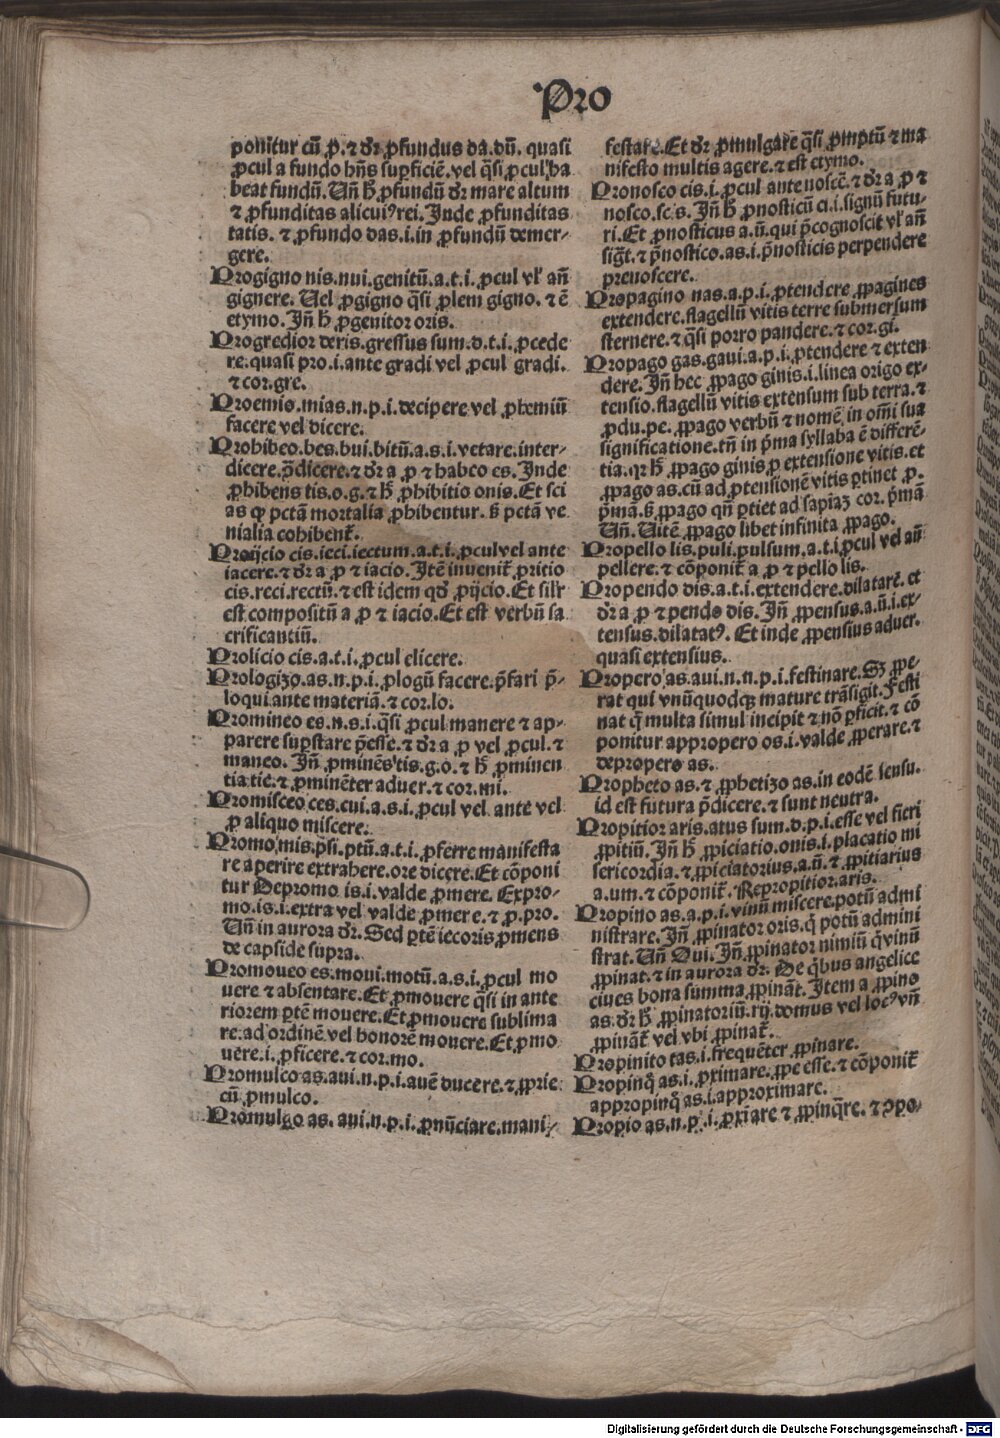 Pro
ponitur cū ꝓ. ⁊ dr̄ ꝓfundus da.dū. quasi
ꝓcul a fundo hn̄s suꝑficiē.vel q̄si ꝓcul ha
beat fundū. Un̄ h̄ ꝓfundū dr̄ mare altum
⁊ ꝓfunditas alicuiꝰ rei. Inde ꝓfunditas
tatis. ⁊ ꝓfundo das.i.in ꝓfundū demer-
gere.
Progigno nis.nui.genitū.a.t.i.ꝓcul vl' an̄
gignere. Uel ꝓgigno q̄si ꝓlem gigno. ⁊ ē
etymo. In̄ h̄ ꝓgenitor oris.
Progredior deris.gressus sum.d.t.i.ꝓcede
re.quasi pro.i.ante gradi vel ꝓcul gradi.
⁊ cor.gre.
Proemis.mias.n.p.i.decipere vel ꝓhemiū
facere vel dicere.
Prohibeo.bes.bui.bitū.a.s.i.vetare.inter-
dicere.p̄dicere.⁊ dr̄ a ꝓ ⁊ habeo es. Inde
ꝓhibens tis.o.g.⁊ h̄ ꝓhibitio onis. Et sci
as ꝙ pctā mortalia ꝓhibentur. s̄ pctā ve
nialia cohibent᷑.
Proijcio cis.ieci.iectum.a.t.i.ꝓcul vel ante
iacere.⁊ dr̄ a ꝓ ⁊ iacio. Itē invenit᷑ ꝓritio
cis.reci.rectū.⁊ est idem qd̄ ꝓijcio. Et silr̄
est compositū a ꝓ ⁊ iacio. Et est verbū sa
crificantiū.
Prolicio cis.a.t.i.ꝓcul elicere.
Prologizo.as.n.p.i.ꝓlogū facere.p̄fari p̄-
loqui.ante materiā.⁊ cor.lo.
Promineo es.n.s.i.q̄si ꝓcul manere ⁊ ap-
parere suꝑstare p̄esse.⁊ dr̄ a ꝓ vel ꝓcul.⁊
maneo. In̄ ꝓminēs tis.g.o.⁊ h̄ ꝓminen
tia tie.⁊ ꝓminēter aduer.⁊ cor.mi.
Promisceo ces.cui.a.s.i.ꝓcul vel ante vel
ꝓ aliquo miscere.
Promo.mis.p̄si.ptū.a.t.i.ꝓferre manifesta
re aperire extrahere.ore dicere. Et cōponi
tur Depromo is.i.valde ꝓmere. Expro-
mo.is.i.extra vel valde ꝓmere.⁊ ꝓ.pro.
Un̄ in aurora dr̄. Sed ꝑtē iecoris ꝓmens
de capside supra.
Promoueo es.moui.motū.a.s.i.ꝓcul mo
uere ⁊ absentare. Et ꝓmouere q̄si in ante
riorem ꝑtē mouere. Et ꝓmouere sublima
re.ad ordinē vel honorē mouere. Et ꝓmo
uere.i.ꝑficere.⁊ cor.mo.
Promulco as.aui.n.p.i.auē ducere.⁊ ꝓprie
cū ꝓmulco.
Promulgo as.aui.n.p.i.ꝓnūciare.mani-
festare. Et dr̄ ꝓmulgare q̄si ꝓmptū ⁊ ma
nifesto multis agere.⁊ est etymo.
Pronosco cis.i.ꝓcul ante noscē.⁊ dr̄ a ꝓ ⁊
nosco.scis. In̄ h̄ ꝓnosticū ci.i.signū futu-
ri. Et ꝓnosticus a.ū.qui p̄cognoscit vl' an̄
sigt̄.⁊ p̄nostico.as.i.p̄nosticis perpendere
prenoscere.
Propagino nas.a.p.i.ꝓtendere ꝓpagines
extendere.flagellū vitis terre submersum
sternere.⁊ q̄si porro pandere.⁊ cor.gi.
Propago gas.gaui.a.p.i.ꝓtendere ⁊ exten
dere. In̄ hec ꝓpago ginis.i.linea origo ex-
tensio.flagellū vitis extensum sub terra.⁊
ꝓdu.pe. ꝓpago verbū ⁊ nomē in om̄i sua
significatione.tn̄ in p̄ma syllaba ē differē-
tia.qr h̄ ꝓpago ginis ꝓ extensione vitis.et
ꝓpago as.cū ad ꝓtensionē vitis ꝑtinet ꝓ.
p̄mā.s̄ ꝓpago qn̄ ꝑtiet ad sapīaꝫ cor. p̄mā
Un̄. Uitē ꝓpago libet infinita ꝓpago.
Propello lis.puli.pulsum.a.t.i.ꝓcul vel an̄
pellere.⁊ cōponit᷑ a ꝓ ⁊ pello lis.
Propendo dis.a.t.i.extendere.dilatare.et
dr̄ a ꝓ ⁊ pendo dis. In̄ ꝓpensus.a.ū.i.ex-
tensus.dilatatꝰ. Et inde ꝓpensius aduer.
quasi extensius.
Propero as.aui.n.n.p.i.festinare. Sꝫ ꝓpe-
rat qui vnūquodqꝫ mature trāsigit. Festi
nat q̄ multa simul incipit ⁊ nō ꝑficit.⁊ cō
ponitur appropero os.i.valde ꝓperare.⁊
depropero as.
Propheto as.⁊ ꝓphetizo as.in eodē sensu.
id est futura p̄dicere.⁊ sunt neutra.
Propitior aris.atus sum.d.p.i.esse vel fieri
ꝓpitiū. In̄ h̄ ꝓpiciatio.onis.i.placatio mi
sericordia.⁊ ꝓpiciatorius.a.ū.⁊ ꝓpitiarius
a.um.⁊ cōponit᷑. Repropitior.aris.
Propino as.a.p.i.vinū miscere.potū admi
nistrare. In̄ ꝓpinator oris.q̄ potū admini
strat. Un̄ Oui. In̄ ꝓpinator nimiū q̄ vinū
ꝓpinat.⁊ in aurora dr̄. De q̄bus angelice
ciues bona summa ꝓpināt. Item a ꝓpino
as.dr̄ h̄ ꝓpinatoriū.rij.domus vel locꝰ vn̄
ꝓpināt᷑ vel vbi ꝓpinat᷑.
Propinito tas.i.frequēter ꝓpinare.
Propinq̄ as.i.ꝓximare.ꝓpe esse.⁊ cōponit᷑
appropinq̄ as.i.approximare.
Propio as.n.p.i.ꝓxīare ⁊ ꝓpinq̄re. ⁊ ꝯpo-
Digitalisierung gefördert durch die Deutsche Forschungsgemeinschaft - DFG